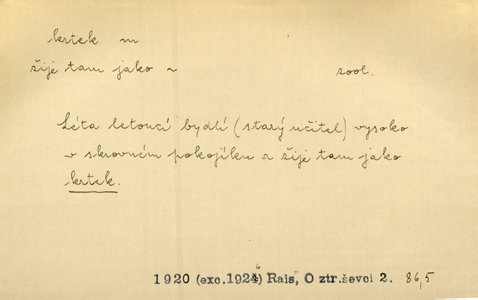 krtek m
žije tam jako ~ zool.
Léta letoucí bydlí (starý učitel) vysoko
v skrovném pokojíku a žije tam jako
krtek.
1920 (exc. 1924) Rais, O ztr. ševci 2. 86,5